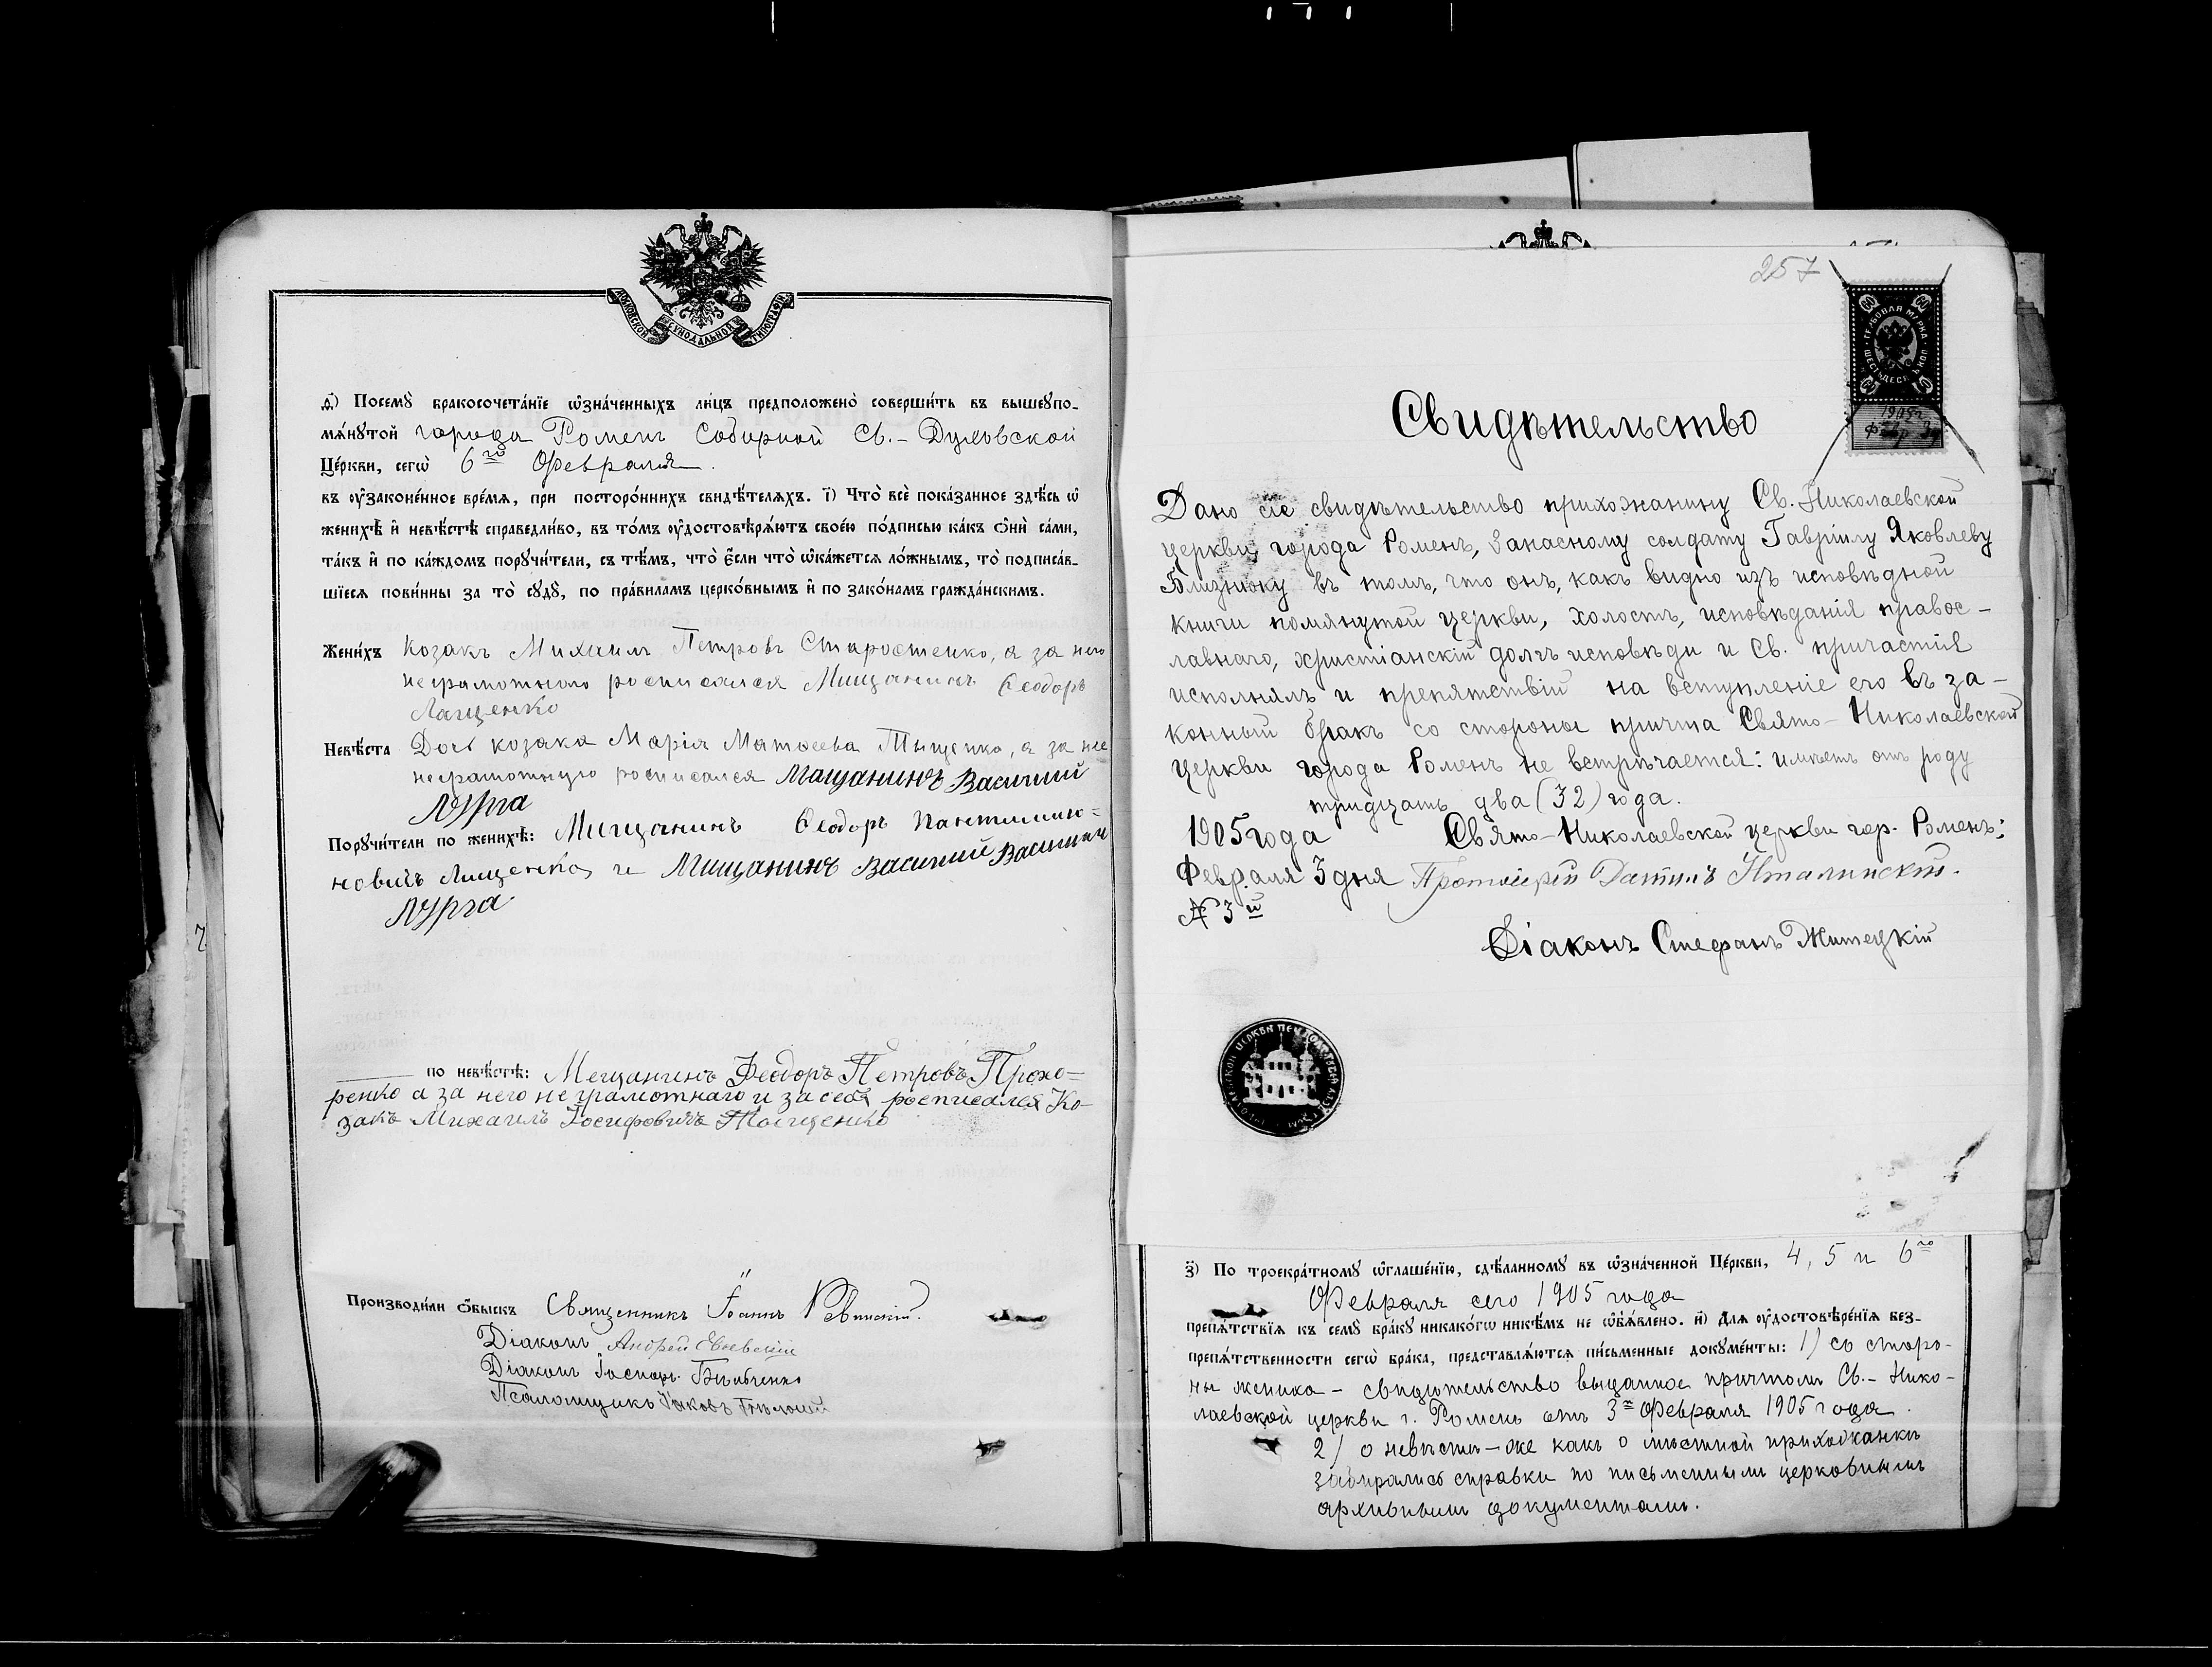 МОСКОВСКОЙ СѴНОДАЛЬНОЙ ТИПОГРАФІИ
д҃) Посемꙋ̀ бракосочета́нїе ѡ҆зна́ченныхъ ли́цъ предположено̀ соверши́ть въ вышеꙋпо-
мѧ́нꙋтой города Ромена Соборной Св.-Духовской
Це́ркви, сегѡ̀ 6го Февраля.
въ ᲂу҆зако́не́нное вре́мѧ, при посторо́ннихъ свидѣ́телѧхъ. і҃) Что̀ всѐ пока́занное здѣ́сь ѡ҆
женихѣ̀ и҆ невѣ́стѣ справедли́во, въ то́мъ ᲂу҆достовѣрѧ́ютъ свое́ю по́дписью ка́къ ѻ҆нѝ са́ми,
та́къ и҆ по ка́ждомъ порꙋчи́тели, съ тѣ́мъ, что̀ є҆́сли что̀ ѡ҆ка́жетсѧ ло́жнымъ, то̀ подписа́в-
шїесѧ пови́нны за то̀ сꙋдꙋ̀, по пра́виламъ церко́внымъ и҆ по зако́намъ гражда́нскимъ.
Жени́хъ Козакъ Михаилъ Петровъ Старостенко, а за него
неграмотного росписался Мищанинъ Ѳеодоръ
Лащенко
Невѣ́ста Дочь козака Марія Матѳеева Тыщенко, а за нее
неграмотную росписался Мащанинъ Василий
Лурга
Порꙋчи́тели по женихѣ̀: Мищанинъ Ѳеодоръ Пантилимо=
новичъ Лищенко, и Мищанинъ Василий Василич
Лурга
по невѣ́стѣ: Мещанинъ Ѳеодоръ Петровъ Прохо=
ренко а за него неграмотнаго и за себя росписался Ко-
закъ Михаилъ Іосифовичъ Тыщенко
Производи́ли ѻ҆́быскъ Священникъ Іоаннъ
Діаконъ Андрей
Діаконъ Іосифъ
Псаломщикъ Яковъ
257
60 60
ГЕРБОВАЯ МАРКА ШЕСТЬДЕСЯТЪ КОП.
1905 г.
Февр. 3 д
Свидѣтельство
Дано сіе свидѣтельство прихожанину Св. Николаевской
церкви, города Роменъ, запасному солдату Гавріилу Яковлеву
Близнюку въ томъ, что онъ, какъ видно изъ исповѣдной
книги помянутой церкви, холостъ, исповѣданія правос-
лавнаго, христіанскій долгъ исповѣди и Св. причастія
исполнялъ и препятствій на вступленіе его въ за-
конный бракъ со стороны причта Свято-Николаевской
церкви города Роменъ не встрѣчается: имѣетъ отъ роду
тридцать два (32) года.
1905 года Свято-Николаевской церкви гор. Роменъ:
Февраля 3 дня Протоіерей
№ 3й
Діаконъ Стефанъ Житецкій
з҃) По троекра́тномꙋ ѡ҆глаше́нїю, сдѣ́ланномꙋ въ ѡ҆зна́ченной Це́ркви, 4, 5 и 6го
Февраля сего 1905 года
препѧ́тствїѧ къ семꙋ̀ бра́кꙋ никако́гѡ никѣ́мъ не ѡ҆б̾ѧ́влено. и҃) Для ᲂу҆достовѣре́нїѧ без-
препѧ́тственности сегѡ̀ бра́ка, представлѧ́ютсѧ пи́сьменные докꙋме́нты: 1) со сторо-
ны жениха - свидѣтельство выданное причтомъ Св.-Нико-
лаевской церкви г. Роменъ отъ 3го Февраля 1905 года.
2) о невѣстѣ-же какъ о мѣстной прихожанкѣ
забирались справки по письменнымъ церковнымъ
архивнымъ документамъ.